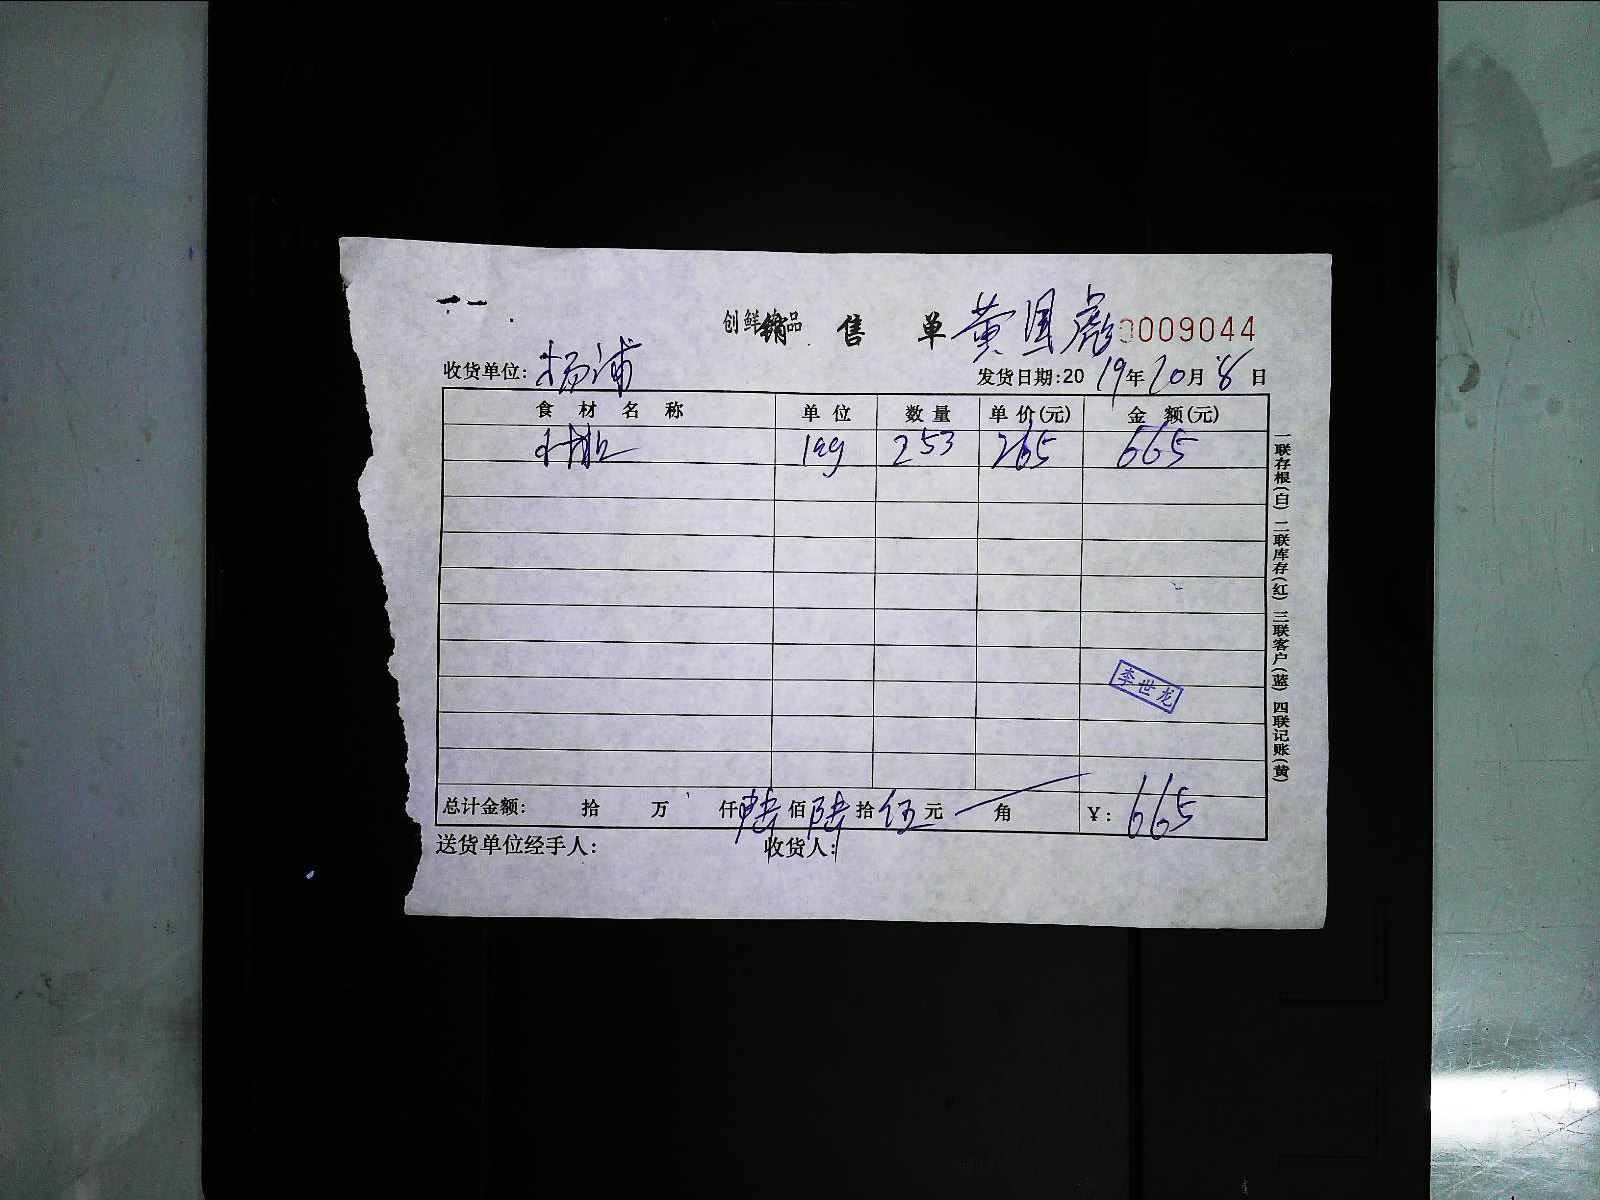 创鲜 品
销 售 单 黄国彪 0009044
收货单位: 杨浦 发货日期:2019年10月8日
食材名称 单位 数量 单价(元) 金额(元)
253 265 665
李世龙
总计金额: 拾 万 仟陆佰陆拾伍元 角 ¥: 665
送货单位经手人: 收货人:
一联存根(白) 二联库存(红) 三联客户(蓝) 四联记账(黄)